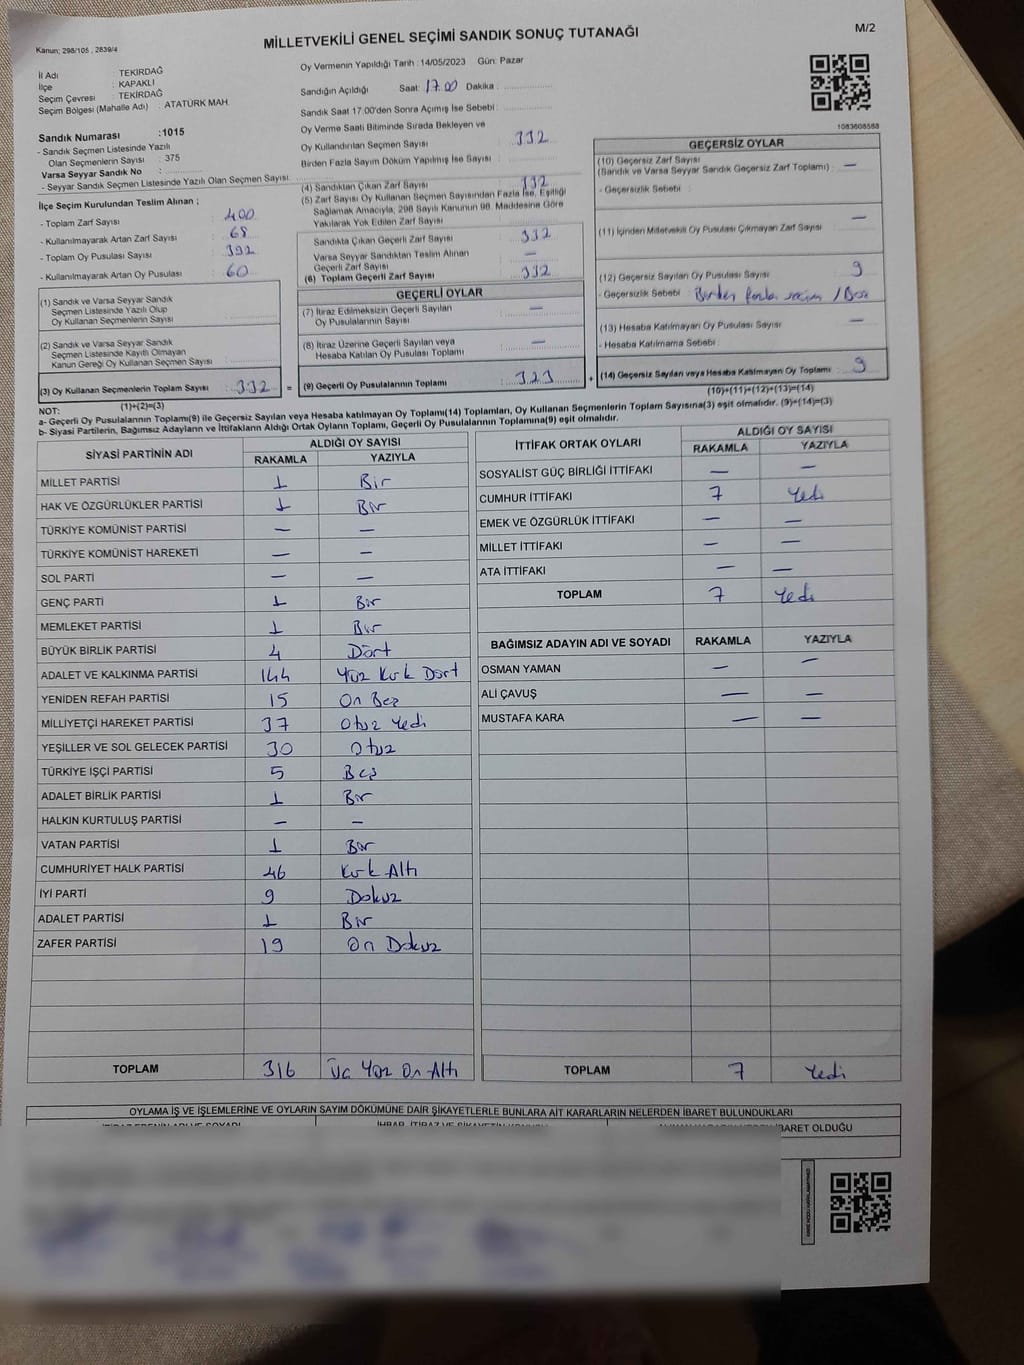 M/2
Kanun; 298/105 , 2839/4
MİLLETVEKİLİ GENEL SEÇİMİ SANDIK SONUÇ TUTANAĞI
İl Adı : TEKİRDAĞ
İlçe : KAPAKLI
Seçim Çevresi : TEKİRDAĞ
Seçim Bölgesi (Mahalle Adı) : ATATÜRK MAH.
Sandık Numarası :1015
- Sandık Seçmen Listesinde Yazılı
Olan Seçmenlerin Sayısı : 375
Varsa Seyyar Sandık No :
- Seyyar Sandık Seçmen Listesinde Yazılı Olan Seçmen Sayısı.
İlçe Seçim Kurulundan Teslim Alınan ;
- Toplam Zarf Sayısı : 400
- Kullanılmayarak Artan Zarf Sayısı : 68
- Toplam Oy Pusulası Sayısı : 392
- Kullanılmayarak Artan Oy Pusulası : 60
(1) Sandık ve Varsa Seyyar Sandık
Seçmen Listesinde Yazılı Olup
Oy Kullanan Seçmenlerin Sayısı :
(2) Sandık ve Varsa Seyyar Sandık
Seçmen Listesinde Kayıtlı Olmayan
Kanun Gereği Oy Kullanan Seçmen Sayısı :
(3) Oy Kullanan Seçmenlerin Toplam Sayısı : 332 =
(1)+(2)=(3)
Oy Vermenin Yapıldığı Tarih : 14/05/2023 Gün: Pazar
Sandığın Açıldığı Saat: 17.00 Dakika :
Sandık Saat 17.00'den Sonra Açımış İse Sebebi :
Oy Verme Saati Bitiminde Sırada Bekleyen ve
Oy Kullandırılan Seçmen Sayısı : 332
Birden Fazla Sayım Döküm Yapılmış İse Sayısı :
(4) Sandıktan Çıkan Zarf Sayısı : 332
(5) Zarf Sayısı Oy Kullanan Seçmen Sayısından Fazla İse, Eşitliği
Sağlamak Amacıyla, 298 Sayılı Kanunun 98. Maddesine Göre
Yakılarak Yok Edilen Zarf Sayısı :
Sandıkta Çıkan Geçerli Zarf Sayısı : 332
Varsa Seyyar Sandıktan Teslim Alınan
Geçerli Zarf Sayısı : —
(6) Toplam Geçerli Zarf Sayısı : 332
GEÇERLİ OYLAR
(7) İtiraz Edilmeksizin Geçerli Sayılan
Oy Pusulalarının Sayısı : —
(8) İtiraz Üzerine Geçerli Sayılan veya
Hesaba Katılan Oy Pusulası Toplamı : —
(9) Geçerli Oy Pusulalarının Toplamı : 323 +
1083608588
GEÇERSİZ OYLAR
(10) Geçersiz Zarf Sayısı
(Sandık ve Varsa Seyyar Sandık Geçersiz Zarf Toplamı) : —
- Geçersizlik Sebebi :
(11) İçinden Milletvekili Oy Pusulası Çıkmayan Zarf Sayısı : —
(12) Geçersiz Sayılan Oy Pusulası Sayısı : 9
- Geçersizlik Sebebi : Birden fazla seçim / Boş
(13) Hesaba Katılmayan Oy Pusulası Sayısı : —
- Hesaba Katılmama Sebebi :
(14) Geçersiz Sayılan veya Hesaba Katılmayan Oy Toplamı : 9
(10)+(11)+(12)+(13)=(14)
NOT:
a- Geçerli Oy Pusulalarının Toplamı(9) ile Geçersiz Sayılan veya Hesaba katılmayan Oy Toplamı(14) Toplamları, Oy Kullanan Seçmenlerin Toplam Sayısına(3) eşit olmalıdır. (9)+(14)=(3)
b- Siyasi Partilerin, Bağımsız Adayların ve İttifakların Aldığı Ortak Oyların Toplamı, Geçerli Oy Pusulalarının Toplamına(9) eşit olmalıdır.
SİYASİ PARTİNİN ADI ALDIĞI OY SAYISI
RAKAMLA YAZIYLA
MİLLET PARTİSİ 1 Bir
HAK VE ÖZGÜRLÜKLER PARTİSİ 1 Bir
TÜRKİYE KOMÜNİST PARTİSİ — —
TÜRKİYE KOMÜNİST HAREKETİ — —
SOL PARTİ — —
GENÇ PARTİ 1 Bir
MEMLEKET PARTİSİ 1 Bir
BÜYÜK BİRLİK PARTİSİ 4 Dört
ADALET VE KALKINMA PARTİSİ 144 Yüz Kırk Dört
YENİDEN REFAH PARTİSİ 15 On Beş
MİLLİYETÇİ HAREKET PARTİSİ 37 Otuz Yedi
YEŞİLLER VE SOL GELECEK PARTİSİ 30 Otuz
TÜRKİYE İŞÇİ PARTİSİ 5 Beş
ADALET BİRLİK PARTİSİ 1 Bir
HALKIN KURTULUŞ PARTİSİ — —
VATAN PARTİSİ 1 Bir
CUMHURİYET HALK PARTİSİ 46 Kırk Altı
İYİ PARTİ 9 Dokuz
ADALET PARTİSİ 1 Bir
ZAFER PARTİSİ 19 On Dokuz
TOPLAM 316 Üç Yüz On Altı
İTTİFAK ORTAK OYLARI ALDIĞI OY SAYISI
RAKAMLA YAZIYLA
SOSYALİST GÜÇ BİRLİĞİ İTTİFAKI — —
CUMHUR İTTİFAKI 7 Yedi
EMEK VE ÖZGÜRLÜK İTTİFAKI — —
MİLLET İTTİFAKI — —
ATA İTTİFAKI — —
TOPLAM 7 Yedi
BAĞIMSIZ ADAYIN ADI VE SOYADI RAKAMLA YAZIYLA
OSMAN YAMAN — —
ALİ ÇAVUŞ — —
MUSTAFA KARA — —
TOPLAM 7 Yedi
OYLAMA İŞ VE İŞLEMLERİNE VE OYLARIN SAYIM DÖKÜMÜNE DAİR ŞİKAYETLERLE BUNLARA AİT KARARLARIN NELERDEN İBARET BULUNDUKLARI
İBARET OLDUĞU